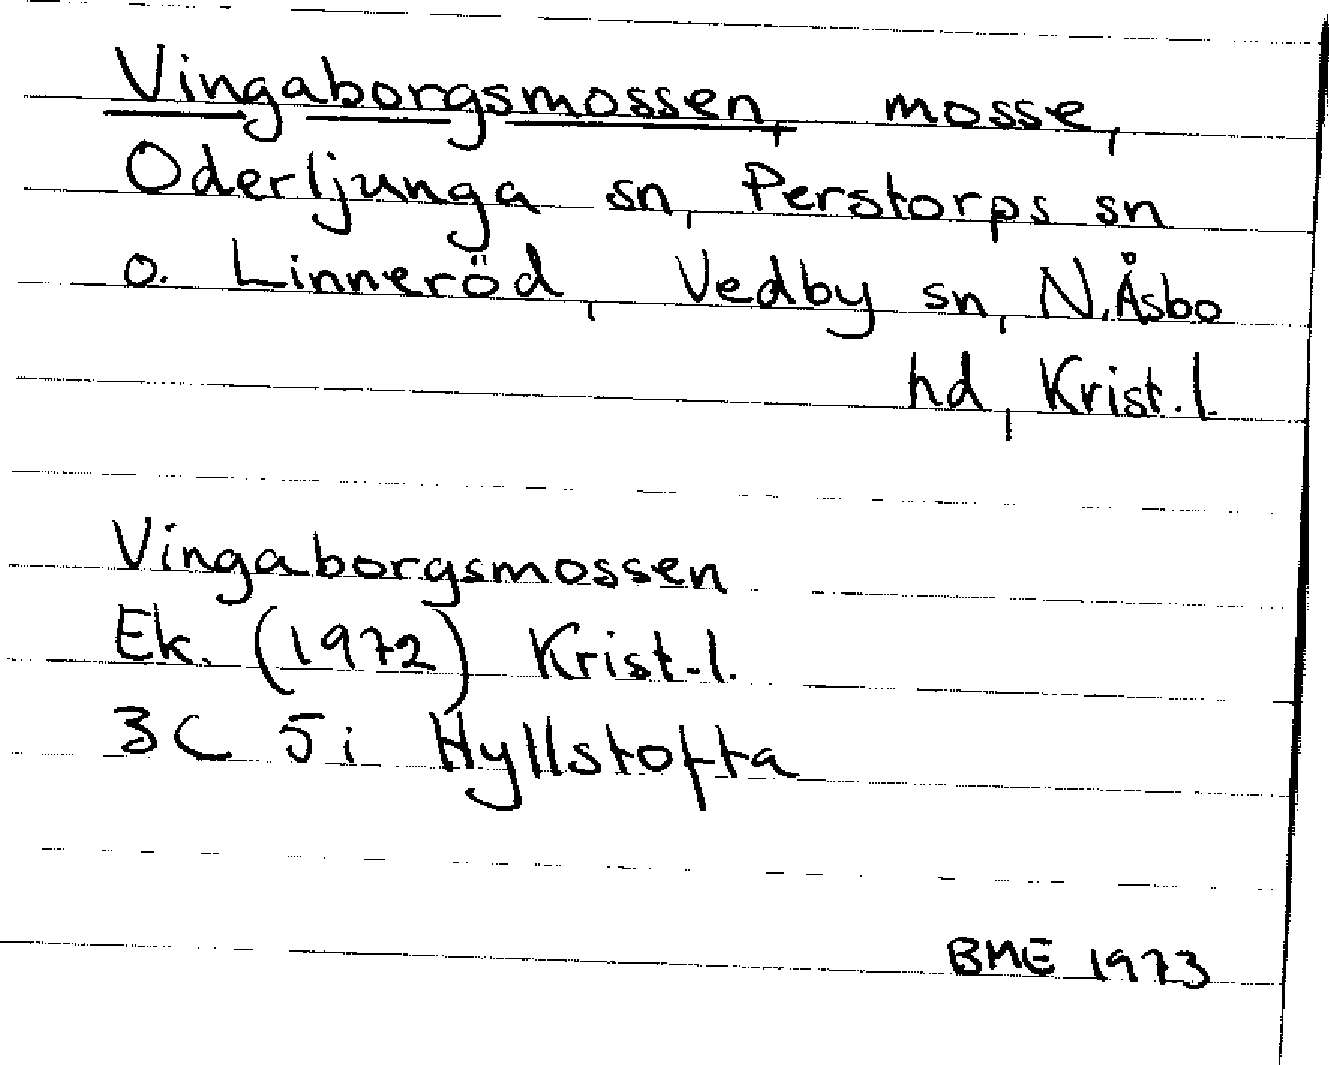 Vingaborgsmossen, mosse,
Oderljunga sn, Perstorps sn
o. Linneröd, Vedby sn, N. Åsbo
hd, Krist. l.
Vingaborgsmossen
Ek. (1972) Krist. l.
3C 5i Hyllstofta
BME 1973